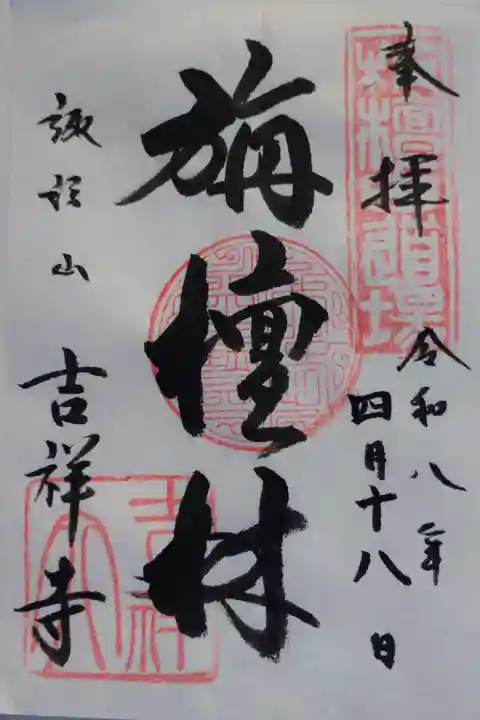 奉拝
令和八年
四月十八日
旃檀林
諏訪山
吉祥寺